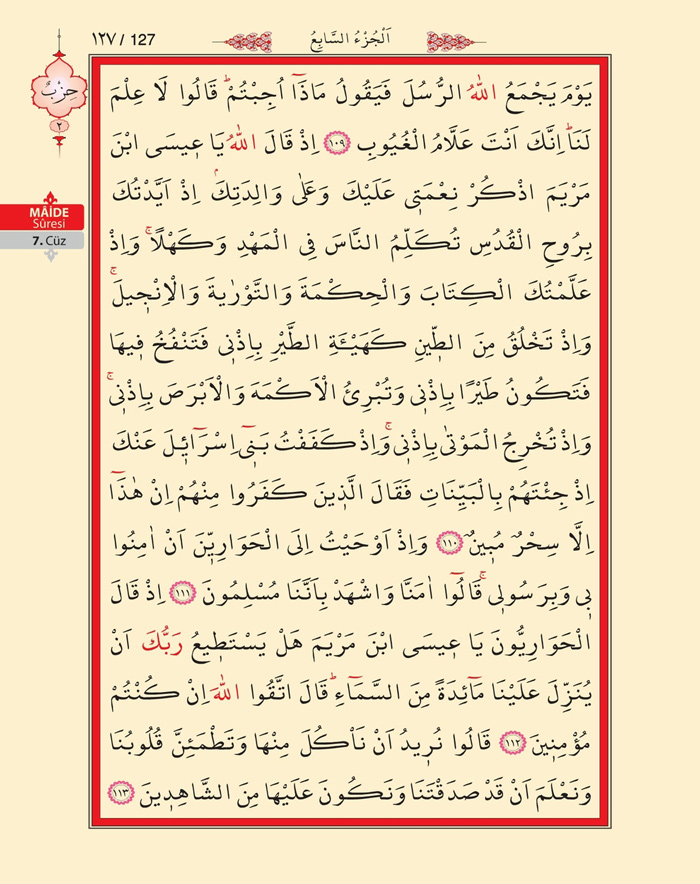 ١٢٧ / 127
اَلْجُزْءُ السَّابِعُ
حِزْبٌ
٢
MÂİDE
Sûresi
7. Cüz
يَوْمَ يَجْمَعُ اللّٰهُ الرُّسُلَ فَيَقُولُ مَاذَٓا اُجِبْتُمْۜ قَالُوا لَا عِلْمَ
لَنَاۜ اِنَّكَ اَنْتَ عَلَّامُ الْغُيُوبِ ﴿١٠٩﴾ اِذْ قَالَ اللّٰهُ يَا ع۪يسَى ابْنَ
مَرْيَمَ اذْكُرْ نِعْمَت۪ي عَلَيْكَ وَعَلٰى وَالِدَتِكَۢ اِذْ اَيَّدْتُكَ
بِرُوحِ الْقُدُسِ تُكَلِّمُ النَّاسَ فِي الْمَهْدِ وَكَهْلًاۚ وَاِذْ
عَلَّمْتُكَ الْكِتَابَ وَالْحِكْمَةَ وَالتَّوْرٰيةَ وَالْاِنْج۪يلَۚ
وَاِذْ تَخْلُقُ مِنَ الطّ۪ينِ كَهَيْـَٔةِ الطَّيْرِ بِاِذْن۪ي فَتَنْفُخُ ف۪يهَا
فَتَكُونُ طَيْرًا بِاِذْن۪ي وَتُبْرِئُ الْاَكْمَهَ وَالْاَبْرَصَ بِاِذْن۪يۚ
وَاِذْ تُخْرِجُ الْمَوْتٰى بِاِذْن۪يۚ وَاِذْ كَفَفْتُ بَن۪ٓي اِسْرَٓائ۪لَ عَنْكَ
اِذْ جِئْتَهُمْ بِالْبَيِّنَاتِ فَقَالَ الَّذ۪ينَ كَفَرُوا مِنْهُمْ اِنْ هٰذَٓا
اِلَّا سِحْرٌ مُب۪ينٌ ﴿١١٠﴾ وَاِذْ اَوْحَيْتُ اِلَى الْحَوَارِيّ۪نَ اَنْ اٰمِنُوا
ب۪ي وَبِرَسُول۪يۚ قَالُٓوا اٰمَنَّا وَاشْهَدْ بِاَنَّنَا مُسْلِمُونَ ﴿١١١﴾ اِذْ قَالَ
الْحَوَارِيُّونَ يَا ع۪يسَى ابْنَ مَرْيَمَ هَلْ يَسْتَط۪يعُ رَبُّكَ اَنْ
يُنَزِّلَ عَلَيْنَا مَٓائِدَةً مِنَ السَّمَٓاءِۜ قَالَ اتَّقُوا اللّٰهَ اِنْ كُنْتُمْ
مُؤْمِن۪ينَ ﴿١١٢﴾ قَالُوا نُر۪يدُ اَنْ نَأْكُلَ مِنْهَا وَتَطْمَئِنَّ قُلُوبُنَا
وَنَعْلَمَ اَنْ قَدْ صَدَقْتَنَا وَنَكُونَ عَلَيْهَا مِنَ الشَّاهِد۪ينَ ﴿١١٣﴾